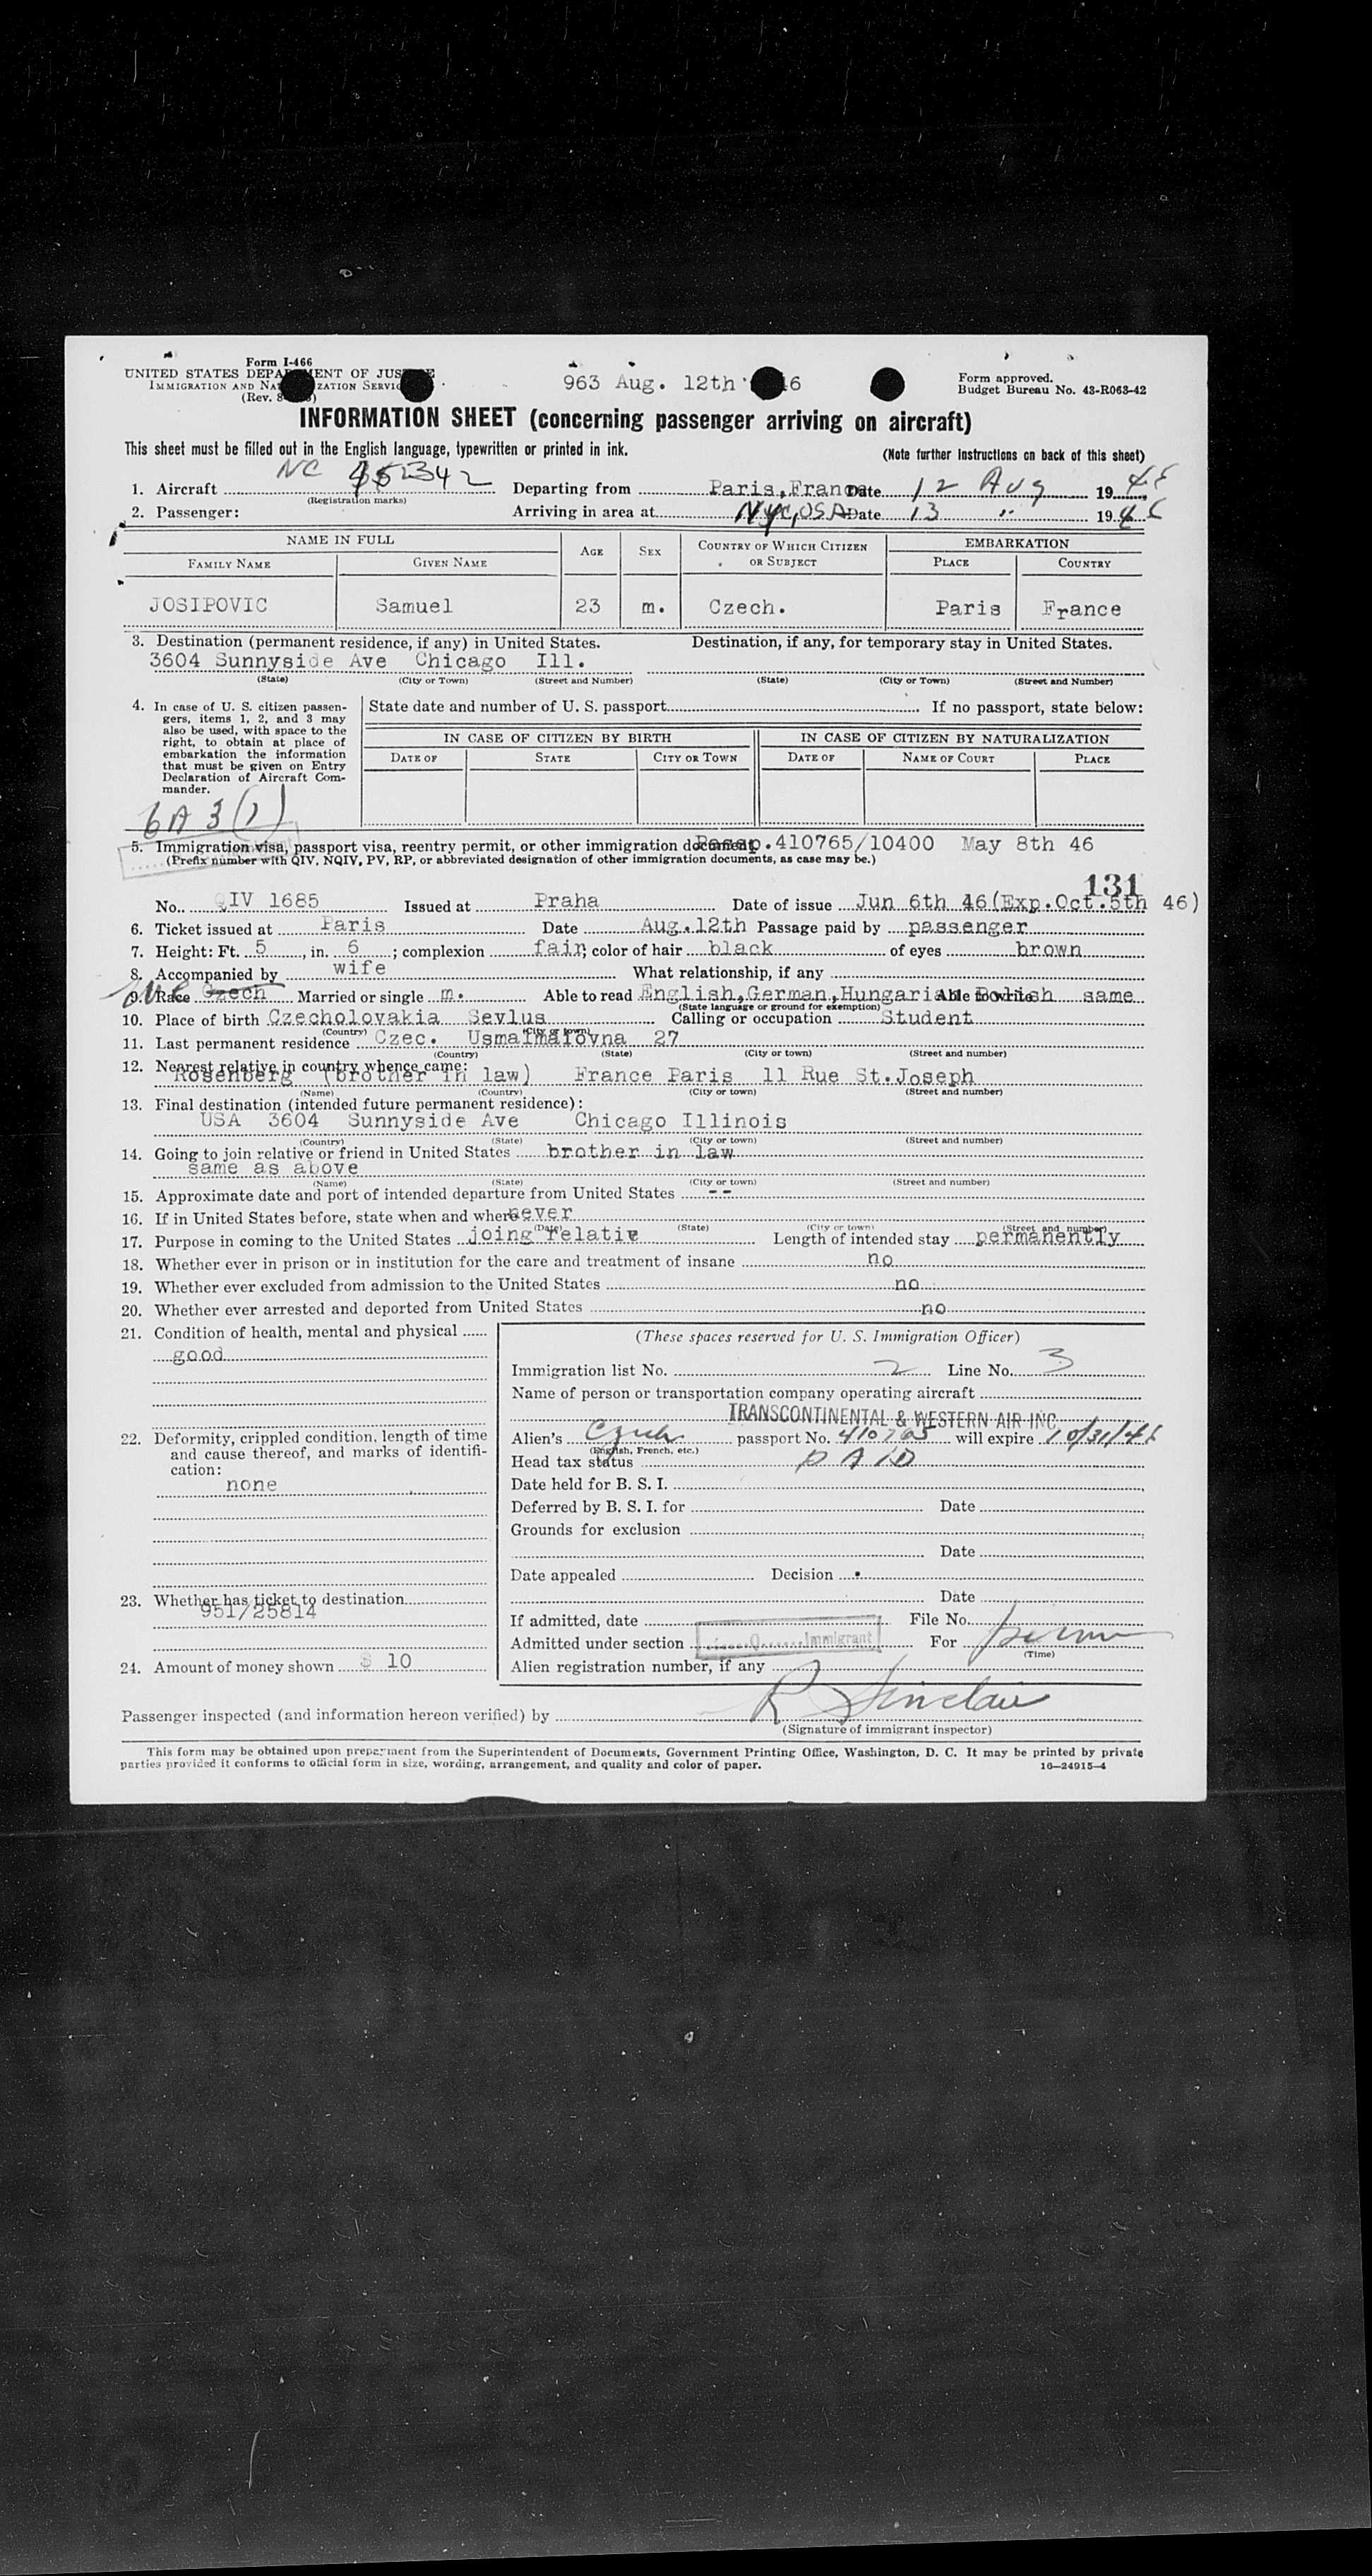 Form I-466
UNITED STATES DEPARTMENT OF JUSTICE
IMMIGRATION AND NATURALIZATION SERVICE
(Rev.
963 Aug. 12th 46
Form approved.
Budget Bureau No. 43-R063-42
INFORMATION SHEET (concerning passenger arriving on aircraft)
This sheet must be filled out in the English language, typewritten or printed in ink.
(Note further instructions on back of this sheet)
1. Aircraft NC Departing from Paris, France Date 12 Aug 1946
(Registration marks)
2. Passenger: Arriving in area at NYC, USA Date 13 " 1946
NAME IN FULL AGE SEX COUNTRY OF WHICH CITIZEN OR SUBJECT EMBARKATION
FAMILY NAME GIVEN NAME PLACE COUNTRY
JOSIPOVIC Samuel 23 m. Czech. Paris France
3. Destination (permanent residence, if any) in United States. Destination, if any, for temporary stay in United States.
3604 Sunnyside Ave Chicago Ill.
(State) (City or Town) (Street and Number) (State) (City or Town) (Street and Number)
4. In case of U. S. citizen passengers, items 1, 2, and 3 may also be used, with space to the right, to obtain at place of embarkation the information that must be given on Entry Declaration of Aircraft Commander.
State date and number of U. S. passport If no passport, state below:
IN CASE OF CITIZEN BY BIRTH IN CASE OF CITIZEN BY NATURALIZATION
DATE OF STATE CITY OR TOWN DATE OF NAME OF COURT PLACE
6A 3(1)
5. Immigration visa, passport visa, reentry permit, or other immigration document. Passp.410765/10400 May 8th 46
(Prefix number with QIV, NQIV, PV, RP, or abbreviated designation of other immigration documents, as case may be.)
131
No. QIV 1685 Issued at Praha Date of issue Jun 6th 46(Exp.Oct.5th 46)
6. Ticket issued at Paris Date Aug.12th Passage paid by passenger
7. Height: Ft. 5, in. 6; complexion fair; color of hair black of eyes brown
8. Accompanied by wife What relationship, if any
9. Race Czech Married or single m. Able to read English,German,Hungarian Polish Able to write same
(State language or ground for exemption)
10. Place of birth Czecholovakia Sevlus Calling or occupation Student
(Country) (City or town)
11. Last permanent residence Czec. 27
(Country) (State) (City or town) (Street and number)
12. Nearest relative in country whence came:
Rosenberg (brother in law) France Paris 11 Rue St.Joseph
(Name) (Country) (City or town) (Street and number)
13. Final destination (intended future permanent residence):
USA 3604 Sunnyside Ave Chicago Illinois
(Country) (State) (City or town) (Street and number)
14. Going to join relative or friend in United States brother in law
same as above
(Name) (State) (City or town) (Street and number)
15. Approximate date and port of intended departure from United States --
16. If in United States before, state when and where never
(Date) (State) (City or town) (Street and number)
17. Purpose in coming to the United States joing relativ Length of intended stay permanently
18. Whether ever in prison or in institution for the care and treatment of insane no
19. Whether ever excluded from admission to the United States no
20. Whether ever arrested and deported from United States no
21. Condition of health, mental and physical
good
22. Deformity, crippled condition, length of time and cause thereof, and marks of identification:
none
23. Whether has ticket to destination
951/25814
24. Amount of money shown $ 10
(These spaces reserved for U. S. Immigration Officer)
Immigration list No. 2 Line No. 3
Name of person or transportation company operating aircraft
TRANSCONTINENTAL & WESTERN AIR INC.
Alien's Czech passport No. 410765 will expire 10/31/46
(English, French, etc.)
Head tax status PAID
Date held for B. S. I.
Deferred by B. S. I. for Date
Grounds for exclusion
Date
Date appealed Decision
Date
If admitted, date File No.
Admitted under section Q Immigrant For perm
(Time)
Alien registration number, if any
Passenger inspected (and information hereon verified) by R Sinclair
(Signature of immigrant inspector)
This form may be obtained upon prepayment from the Superintendent of Documents, Government Printing Office, Washington, D. C. It may be printed by private
parties provided it conforms to official form in size, wording, arrangement, and quality and color of paper. 16—24915-4